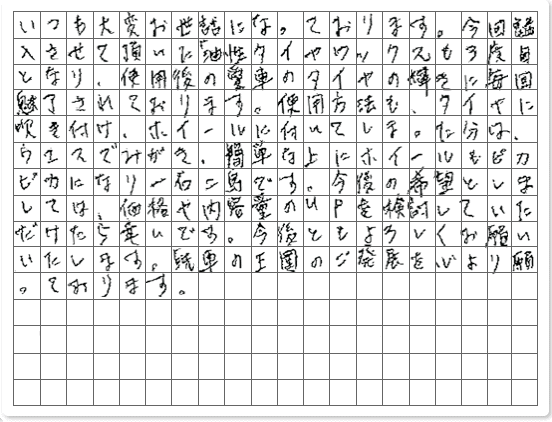 いつも大変お世話になっております。今回購
入させて頂いた「油性タイヤワックスも3度目
となり、使用後の愛車のタイヤの輝きに毎回
魅了されております。使用方法も、タイヤに
吹き付け、ホイールに付いてしまった分は、
ウエスでみがき、簡単な上にホイールもピカ
ピカになり一石二鳥です。今後の希望としま
しては、価格や内容量のUPを検討していた
だけたら幸いです。今後ともよろしくお願い
いたします。洗車の王国のご発展を心より願
っております。